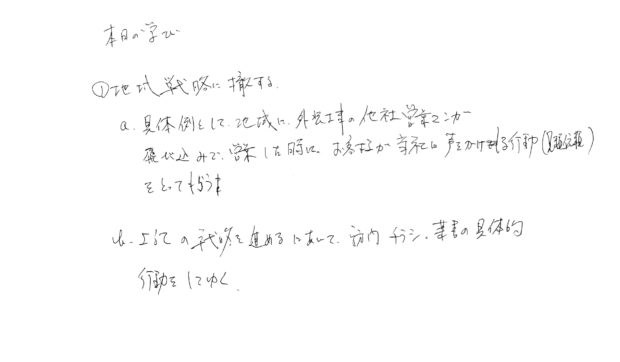 本日の学び
①地域戦略に徹する.
a. 具体例として、地域に、外装工事の他社営業マンが
飛び込みで、営業した時に、お客様が当社に声をかけてくれる行動
をとってもらう
b. 上記の戦略を進めるにあたって、訪問、チラシ、葉書の具体的
行動をしてゆく.